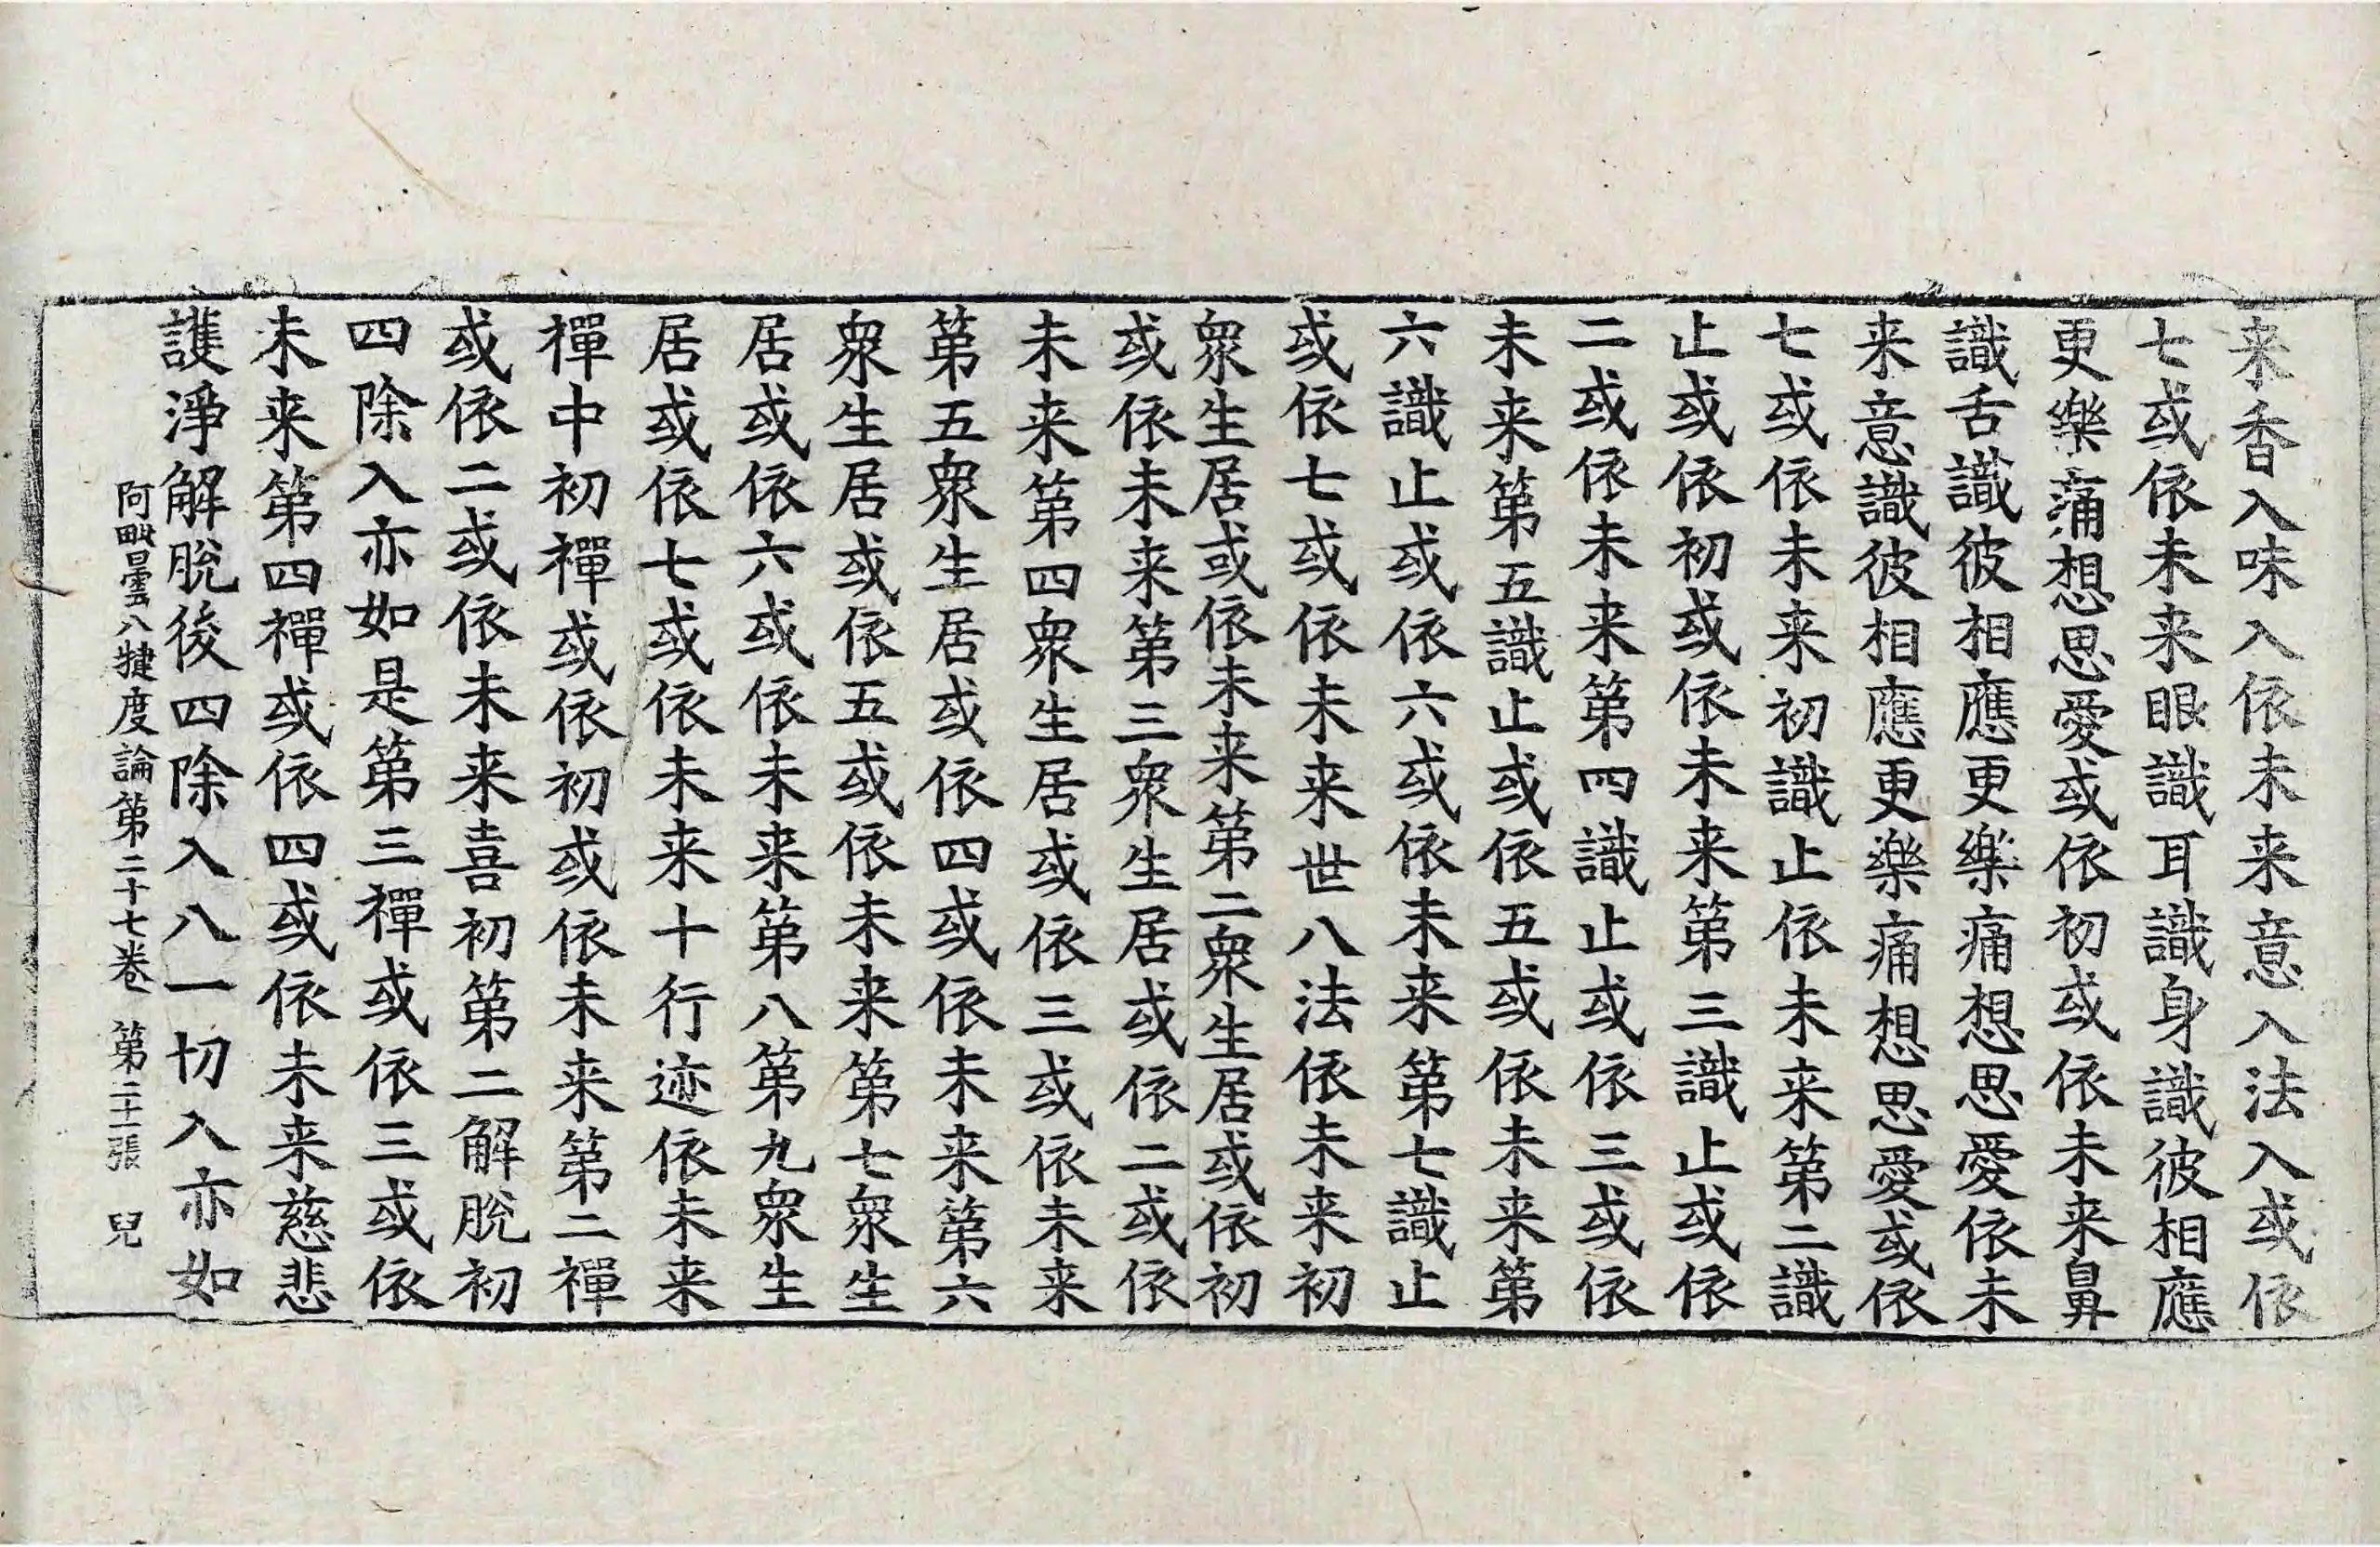 来香入味入依未来意入法入或依
七或依未来眼識耳識身識彼相應
更樂痛想思愛或依初或依未来鼻
識舌識彼相應更樂痛想思愛依未
来意識彼相應更樂痛想思愛或依
七或依未来初識止依未来第二識
止或依初或依未来第三識止或依
二或依未来第四識止或依三或依
未来第五識止或依五或依未来第
六識止或依六或依未来第七識止
或依七或依未来世八法依未来初
衆生居或依未来第二衆生居或依初
或依未来第三衆生居或依二或依
未来第四衆生居或依三或依未来
第五衆生居或依四或依未来第六
衆生居或依五或依未来第七衆生
居或依六或依未来第八第九衆生
居或依七或依未来十行迹依未来
禪中初禪或依初或依未来第二禪
或依二或依未来喜初第二解脫初
四除入亦如是第三禪或依三或依
未来第四禪或依四或依未来慈悲
護淨解脫後四除入八一切入亦如
阿毗曇八犍度論第二十七卷 第二十一張 兒